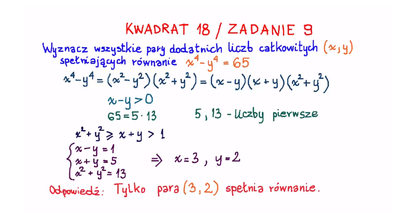 KWADRAT 18 / ZADANIE 9
Wyznacz wszystkie pary dodatnich liczb całkowitych (x,y)
spełniających równanie x⁴-y⁴=65
x⁴-y⁴=(x²-y²)(x²+y²)=(x-y)(x+y)(x²+y²)
x-y>0
65=5·13 5,13-liczby pierwsze
x²+y²⩾x+y>1
{x-y=1
x+y=5 ⇒ x=3, y=2
x²+y²=13
Odpowiedź: Tylko para (3,2) spełnia równanie.